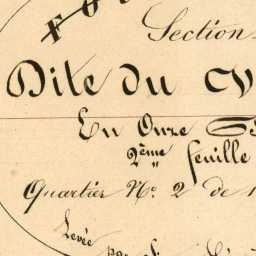 Section
Dite du
En Onze
2ème feuille
Quartier No. 2 de
Levée par